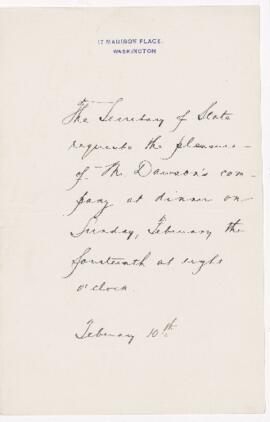 17 MADISON PLACE.
WASHINGTON
The Secretary of State
requests the pleasure
of Mr. Dawson's com-
pany at dinner on
Sunday, February the
fourteenth at eight
o'clock.
February 10th